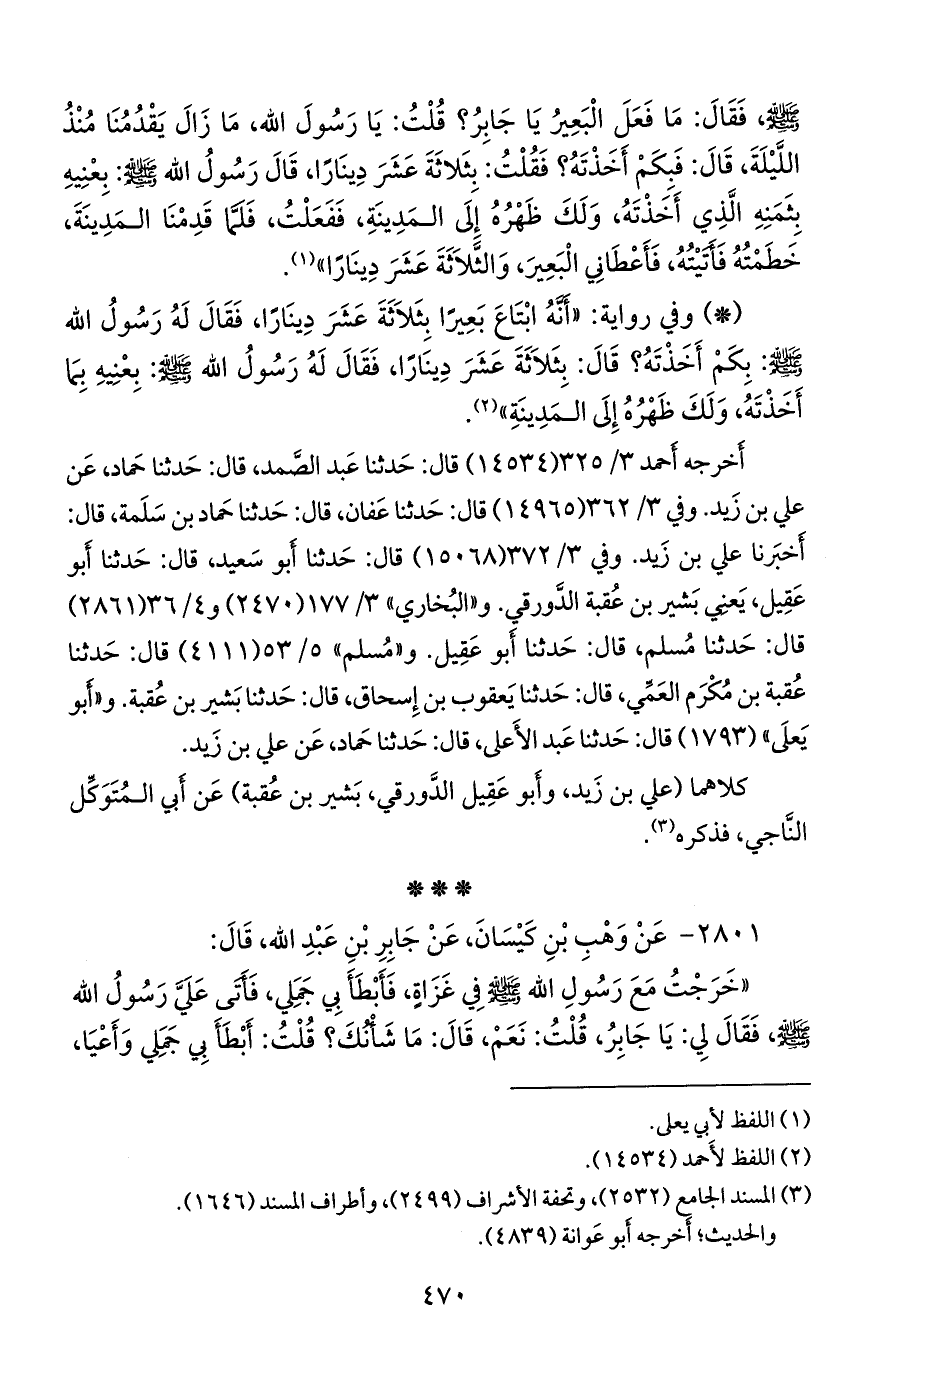 ﷺ، فَقَالَ: مَا فَعَلَ الْبَعِيرُ يَا جَابِرُ؟ قُلْتُ: يَا رَسُولَ الله، مَا زَالَ يَقْدُمُنَا مُنْذُ
اللَّيْلَةَ، قَالَ: فَبِكَمْ أَخَذْتَهُ؟ فَقُلْتُ: بِثَلاثَةَ عَشَرَ دِينَارًا، قَالَ رَسُولُ الله ﷺ: بِعْنِيهِ
بِثَمَنِهِ الَّذِي أَخَذْتَهُ، وَلَكَ ظَهْرُهُ إِلَى الـمَدِينَةِ، فَفَعَلْتُ، فَلَمَّا قَدِمْنَا الـمَدِينَةَ،
خَطَمْتُهُ فَأَتَيْتُهُ، فَأَعْطَانِي الْبَعِيرَ، وَالثَّلاَثَةَ عَشَرَ دِينَارًا»(١).
(*) وفي رواية: «أَنَّهُ ابْتَاعَ بَعِيرًا بِثَلاَثَةَ عَشَرَ دِينَارًا، فَقَالَ لَهُ رَسُولُ الله
ﷺ: بِكَمْ أَخَذْتَهُ؟ قَالَ: بِثَلاَثَةَ عَشَرَ دِينَارًا، فَقَالَ لَهُ رَسُولُ الله ﷺ: بِعْنِيهِ بِمَا
أَخَذْتَهُ، وَلَكَ ظَهْرُهُ إِلَى الـمَدِينَةِ»(٢).
أَخرجه أَحمد ٣/ ٣٢٥(١٤٥٣٤) قال: حَدثنا عَبد الصَّمد، قال: حَدثنا حَماد، عَن
علي بن زَيد. وفي ٣/ ٣٦٢(١٤٩٦٥) قال: حَدثنا عَفان، قال: حَدثنا حَماد بن سَلَمة، قال:
أَخبَرنا علي بن زَيد. وفي ٣/ ٣٧٢(١٥٠٦٨) قال: حَدثنا أَبو سَعيد، قال: حَدثنا أَبو
عَقِيل، يَعنِي بَشير بن عُقبة الدَّورقي. و«البُخاري» ٣/ ١٧٧(٢٤٧٠) و٤/ ٣٦(٢٨٦١)
قال: حَدثنا مُسلم، قال: حَدثنا أَبو عَقِيل. و«مُسلم» ٥/ ٥٣(٤١١١) قال: حَدثنا
عُقبة بن مُكْرَم العَمِّي، قال: حَدثنا يَعقوب بن إِسحاق، قال: حَدثنا بَشير بن عُقبة. و«أَبو
يَعلَى» (١٧٩٣) قال: حَدثنا عَبد الأَعلى، قال: حَدثنا حَماد، عَن علي بن زَيد.
كلاهما (علي بن زَيد، وأَبو عَقِيل الدَّورقي، بَشير بن عُقبة) عَن أَبي الـمُتَوَكِّل
النَّاجي، فذكره(٣).
* * *
٢٨٠١- عَنْ وَهْبِ بْنِ كَيْسَانَ، عَنْ جَابِرِ بْنِ عَبْدِ الله، قَالَ:
«خَرَجْتُ مَعَ رَسُولِ الله ﷺ فِي غَزَاةٍ، فَأَبْطَأَ بِي جَمَلِي، فَأَتَى عَلَيَّ رَسُولُ الله
ﷺ، فَقَالَ لِي: يَا جَابِرُ، قُلْتُ: نَعَمْ، قَالَ: مَا شَأْنُكَ؟ قُلْتُ: أَبْطَأَ بِي جَمَلِي وَأَعْيَا،
(١) اللفظ لأَبي يعلى.
(٢) اللفظ لأَحمد (١٤٥٣٤).
(٣) المسند الجامع (٢٥٣٢)، وتحفة الأشراف (٢٤٩٩)، وأطراف المسند (١٦٤٦).
والحديث؛ أَخرجه أَبو عَوانة (٤٨٣٩).
٤٧٠